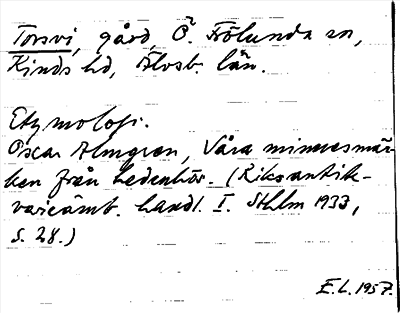 Torsvi, gård, Ö. Frölunda sn,
Kinds hd, Älvsb. län.
Etymologi.
Oscar Almgren, Våra minnesmär-
ken från hedenhös. (Riksantik-
varieämb. handl. I. Sthlm 1933,
s. 28.)
E.L. 1957.